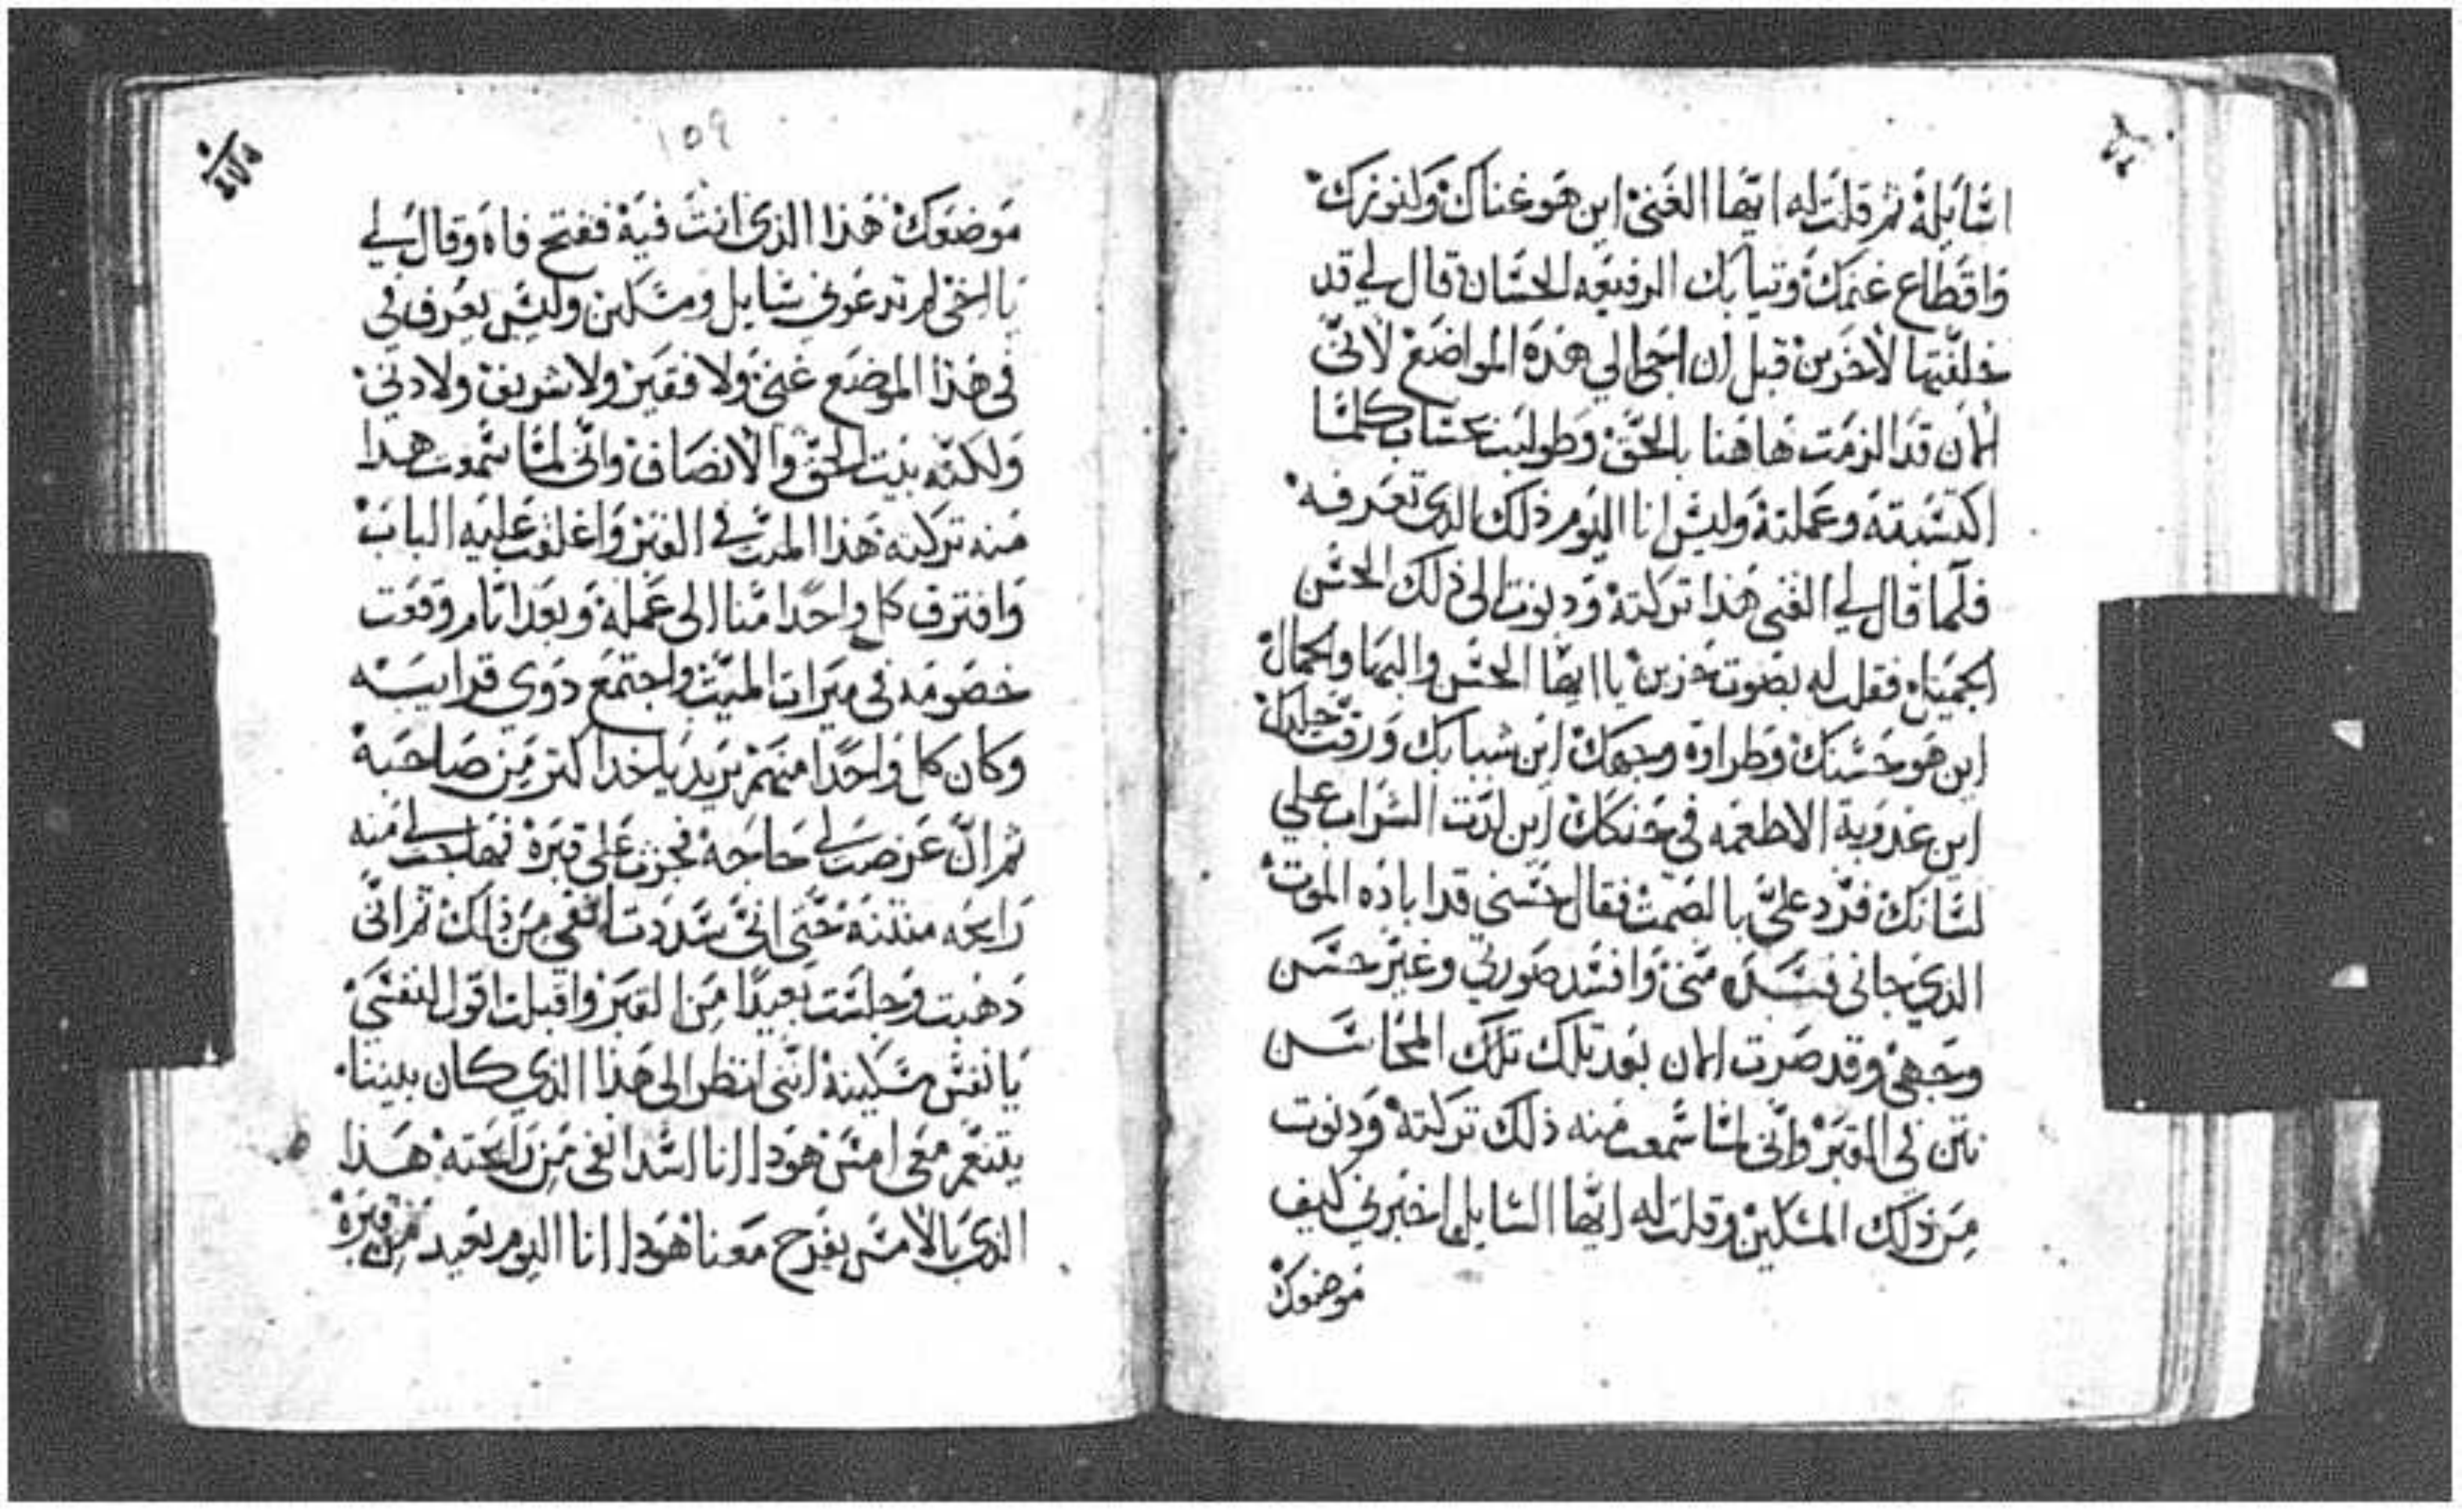 اسَايله ثم قلت له ايّها الغَني اين هو غناك وَاين وَزنك
وَاقطاع غنمَك وَتيابك الرفيعه الحسَان قال لي قد
خلفّتها لاخرَين قبل ان اجي الي هَذه المواضع لانّي
الان قد الزمَت هَاهنا بالحَق وَطولبت بحسَاب كلمَا
اكتسَبته وعَملته وَليسَ انا اليَوم ذلك الدي تعَرفه
فلمّا قال لي الغَني هَذا تركته وَدنوت الي ذلك الحسَن
الجميَل فقلت له بصَوت حَزين يا ايّها الحسَن والبهَا والجمال
اين هو حسَنك وَطراوة وجهَك اين شبابك وَرقت جلدك
اين عدوبة الاطعمَه في حَنكك اين لدّت الشرَاب علي
لسَانك فردّ عليّ بالصَمت فقال حسَني قد اباده الموت
الدي جاني فسَله منّي وَافسَد صَورتي وغيرّ حسَن
وجهَي وقد صَرت الان بعَد تلك تلك المحَاسَن
نتن في القبَر وانّي لمّا سَمعت منه ذلك تركته وَدنوت
مِن ذلك المسَكين وقلت له ايّها السَايل اخبرَني كيف
موضعَك
109
مَوضعَك هَذا الذي انت فيه ففتح فاه وَقال لي
يا اخي لم تدعَوني سَايل ومسَكين وليسَ يعَرف في
في هَذا الموضَع غني وَلا فقير ولا شريف ولا دني
وَلكنّه بيَت الحَق وَالانصَاف وانّي لمّا سَمعت هدا
منه تركته هَذا الميت في القبَر وَاغلقت عَليه البابَ
وَافترق كل واحدا منّا الي عَمله وَبعَد ايّام وقعَت
خصَومه في ميَرات الميّت وَاجتمَع دَوي قرابيَته
وَكان كل وَاحدا منهَم يرَيد ياخد اكتر مِن صَاحبَه
ثم انّ عَرضت لي حَاجَه فجزت علي قبرَه فهاجت لي مَنه
رَايحَه منتنه حَتي انّي سَددت انفي مِن ذلك ثم انّي
دَهبت وَجلسَت بعَيدا مِن القبَر وَاقبلت اقول لنفسَي
يَا نفسَ مسَكينه انتي انظر الي هَذا الدي كان بيننا
يتنعّم معَي امسَ هودا انا اسَد انفي مِن رَايحَته هَذا
الدي بالامسَ يفرَح مَعنا هَودا انا اليَوم بعَيد مِن قبرَه